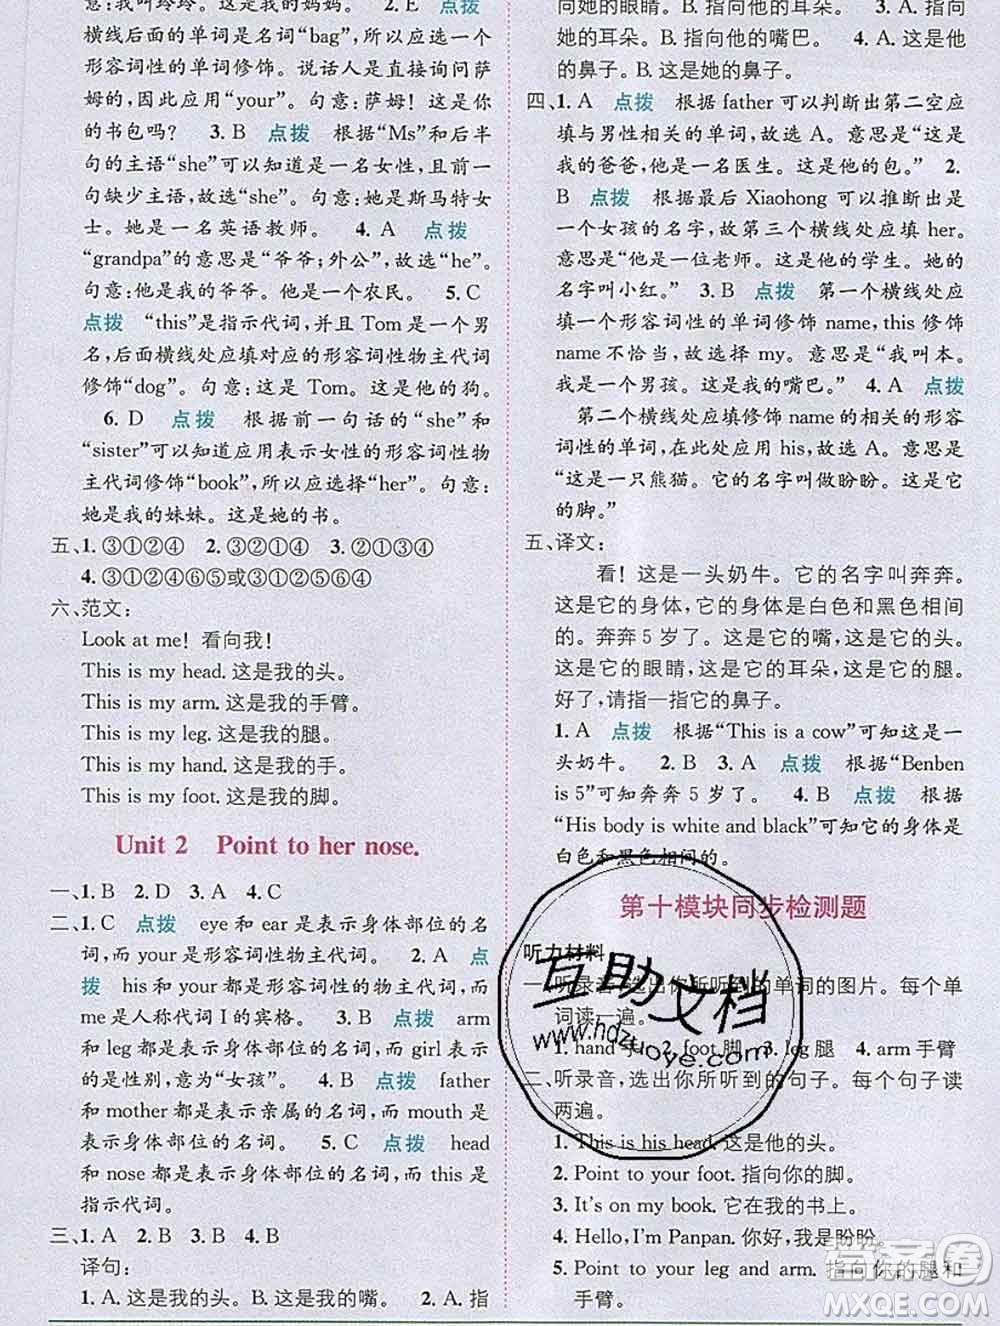 意:我叫玲玲。这是我的妈妈。 2. E 点拨
横线后面的单词是名词“bag”,所以应选一个
形容词性的单词修饰。说话人是直接询问萨
姆的,因此应用“your”。句意:萨姆!这是你
的书包吗? 3. B 点拨 根据“Ms”和后半
句的主语“she”可以知道是一名女性,且前一
句缺少主语,故选“she”。句意:她是斯马特女
士。她是一名英语教师。 4. A 点拨
“grandpa”的意思是“爷爷;外公”,故选“he”。
句意:这是我的爷爷。他是一个农民。 5. C
点拨 “this”是指示代词,并且 Tom 是一个男
名,后面横线处应填对应的形容词性物主代词
修饰“dog”。句意:这是 Tom。这是他的狗。
6. D 点拨 根据前一句话的“she”和
“sister”可以知道应用表示女性的形容词性物
主代词修饰“book”,所以应选择“her”。句意:
她是我的妹妹。这是她的书。
五、1. ③①②④ 2. ②③①④ 3. ②①③④
4. ③①②④⑥⑤或③①②④⑤⑥
六、范文:
Look at me! 看向我!
This is my head. 这是我的头。
This is my arm. 这是我的手臂。
This is my leg. 这是我的腿。
This is my hand. 这是我的手。
This is my foot. 这是我的脚。
Unit 2 Point to her nose.
一、1. B 2. D 3. A 4. C
二、1. C 点拨 eye 和 ear 是表示身体部位的名
词,而 your 是形容词性物主代词。 2. A 点
拨 his 和 your 都是形容词性的物主代词,而
me 是人称代词 I 的宾格。 3. B 点拨 arm
和 leg 都是表示身体部位的名词,而 girl 表示
的是性别,意为“女孩”。 4. B 点拨 father
和 mother 都是表示亲属的名词,而 mouth 是
表示身体部位的名词。 5. C 点拨 head
和 nose 是表示身体部位的名词,而 this 是
指示代词。
三、1. A 2. B 3. A 4. B
译句:
1. A. 这是我的头。B. 这是我的嘴。 2. A. 指
向她的眼睛。B. 指向她的耳朵。 3. A. 指向
她的耳朵。B. 指向他的嘴巴。 4. A. 这是他
的鼻子。B. 这是她的鼻子。
四、1. A 点拨 根据 father 可以判断出第二空应
填与男性相关的单词,故选 A。意思是“这是
我的爸爸,他是一名医生。这是他的包。” 2.
B 点拨 根据最后 Xiaohong 可以推断出是
一个女孩的名字,故第三个横线处应填 her。
意思是“他是一位老师。这是他的学生。她的
名字叫小红。” 3. B 点拨 第一个横线处应
填一个形容词性的单词修饰 name,this 修饰
name 不恰当,故选择 my。意思是“我叫本。
我是一个男孩。这是我的嘴巴。” 4. A 点拨
第二个横线处应填修饰 name 的相关的形容
词性的单词,在此处应用 his,故选 A。意思是
“这是一只熊猫。它的名字叫做盼盼。这是它
的脚。”
五、译文:
看!这是一头奶牛。它的名字叫奔奔。
这是它的身体,它的身体是白色和黑色相间
的。奔奔 5 岁了。这是它的嘴,这是它的头。
这是它的眼睛,这是它的耳朵,这是它的腿。
好了,请指一指它的鼻子。
1. A 点拨 根据“This is a cow”可知这是一
头奶牛。 3. A 点拨 根据“Benben
is 5”可知奔奔 5 岁了。 4. B 点拨 根据
“His body is white and black”可知它的身体是
白色和黑色相间的。
第十模块同步检测题
听力材料
一、听录音,选出你所听到的单词的图片。每个单
词读一遍。
1. hand 手 2. foot 脚 3. leg 腿 4. arm 手臂
二、听录音,选出你所听到的句子。每个句子读
两遍。
1. This is his head. 这是他的头。
2. Point to your foot. 指向你的脚。
3. It's on my book. 它在我的书上。
4. Hello, I'm Panpan. 你好,我是盼盼。
5. Point to your leg and arm. 指向你的腿和
手臂。
互助文档
www.hdzuoye.com
答案圈
MXQE.COM